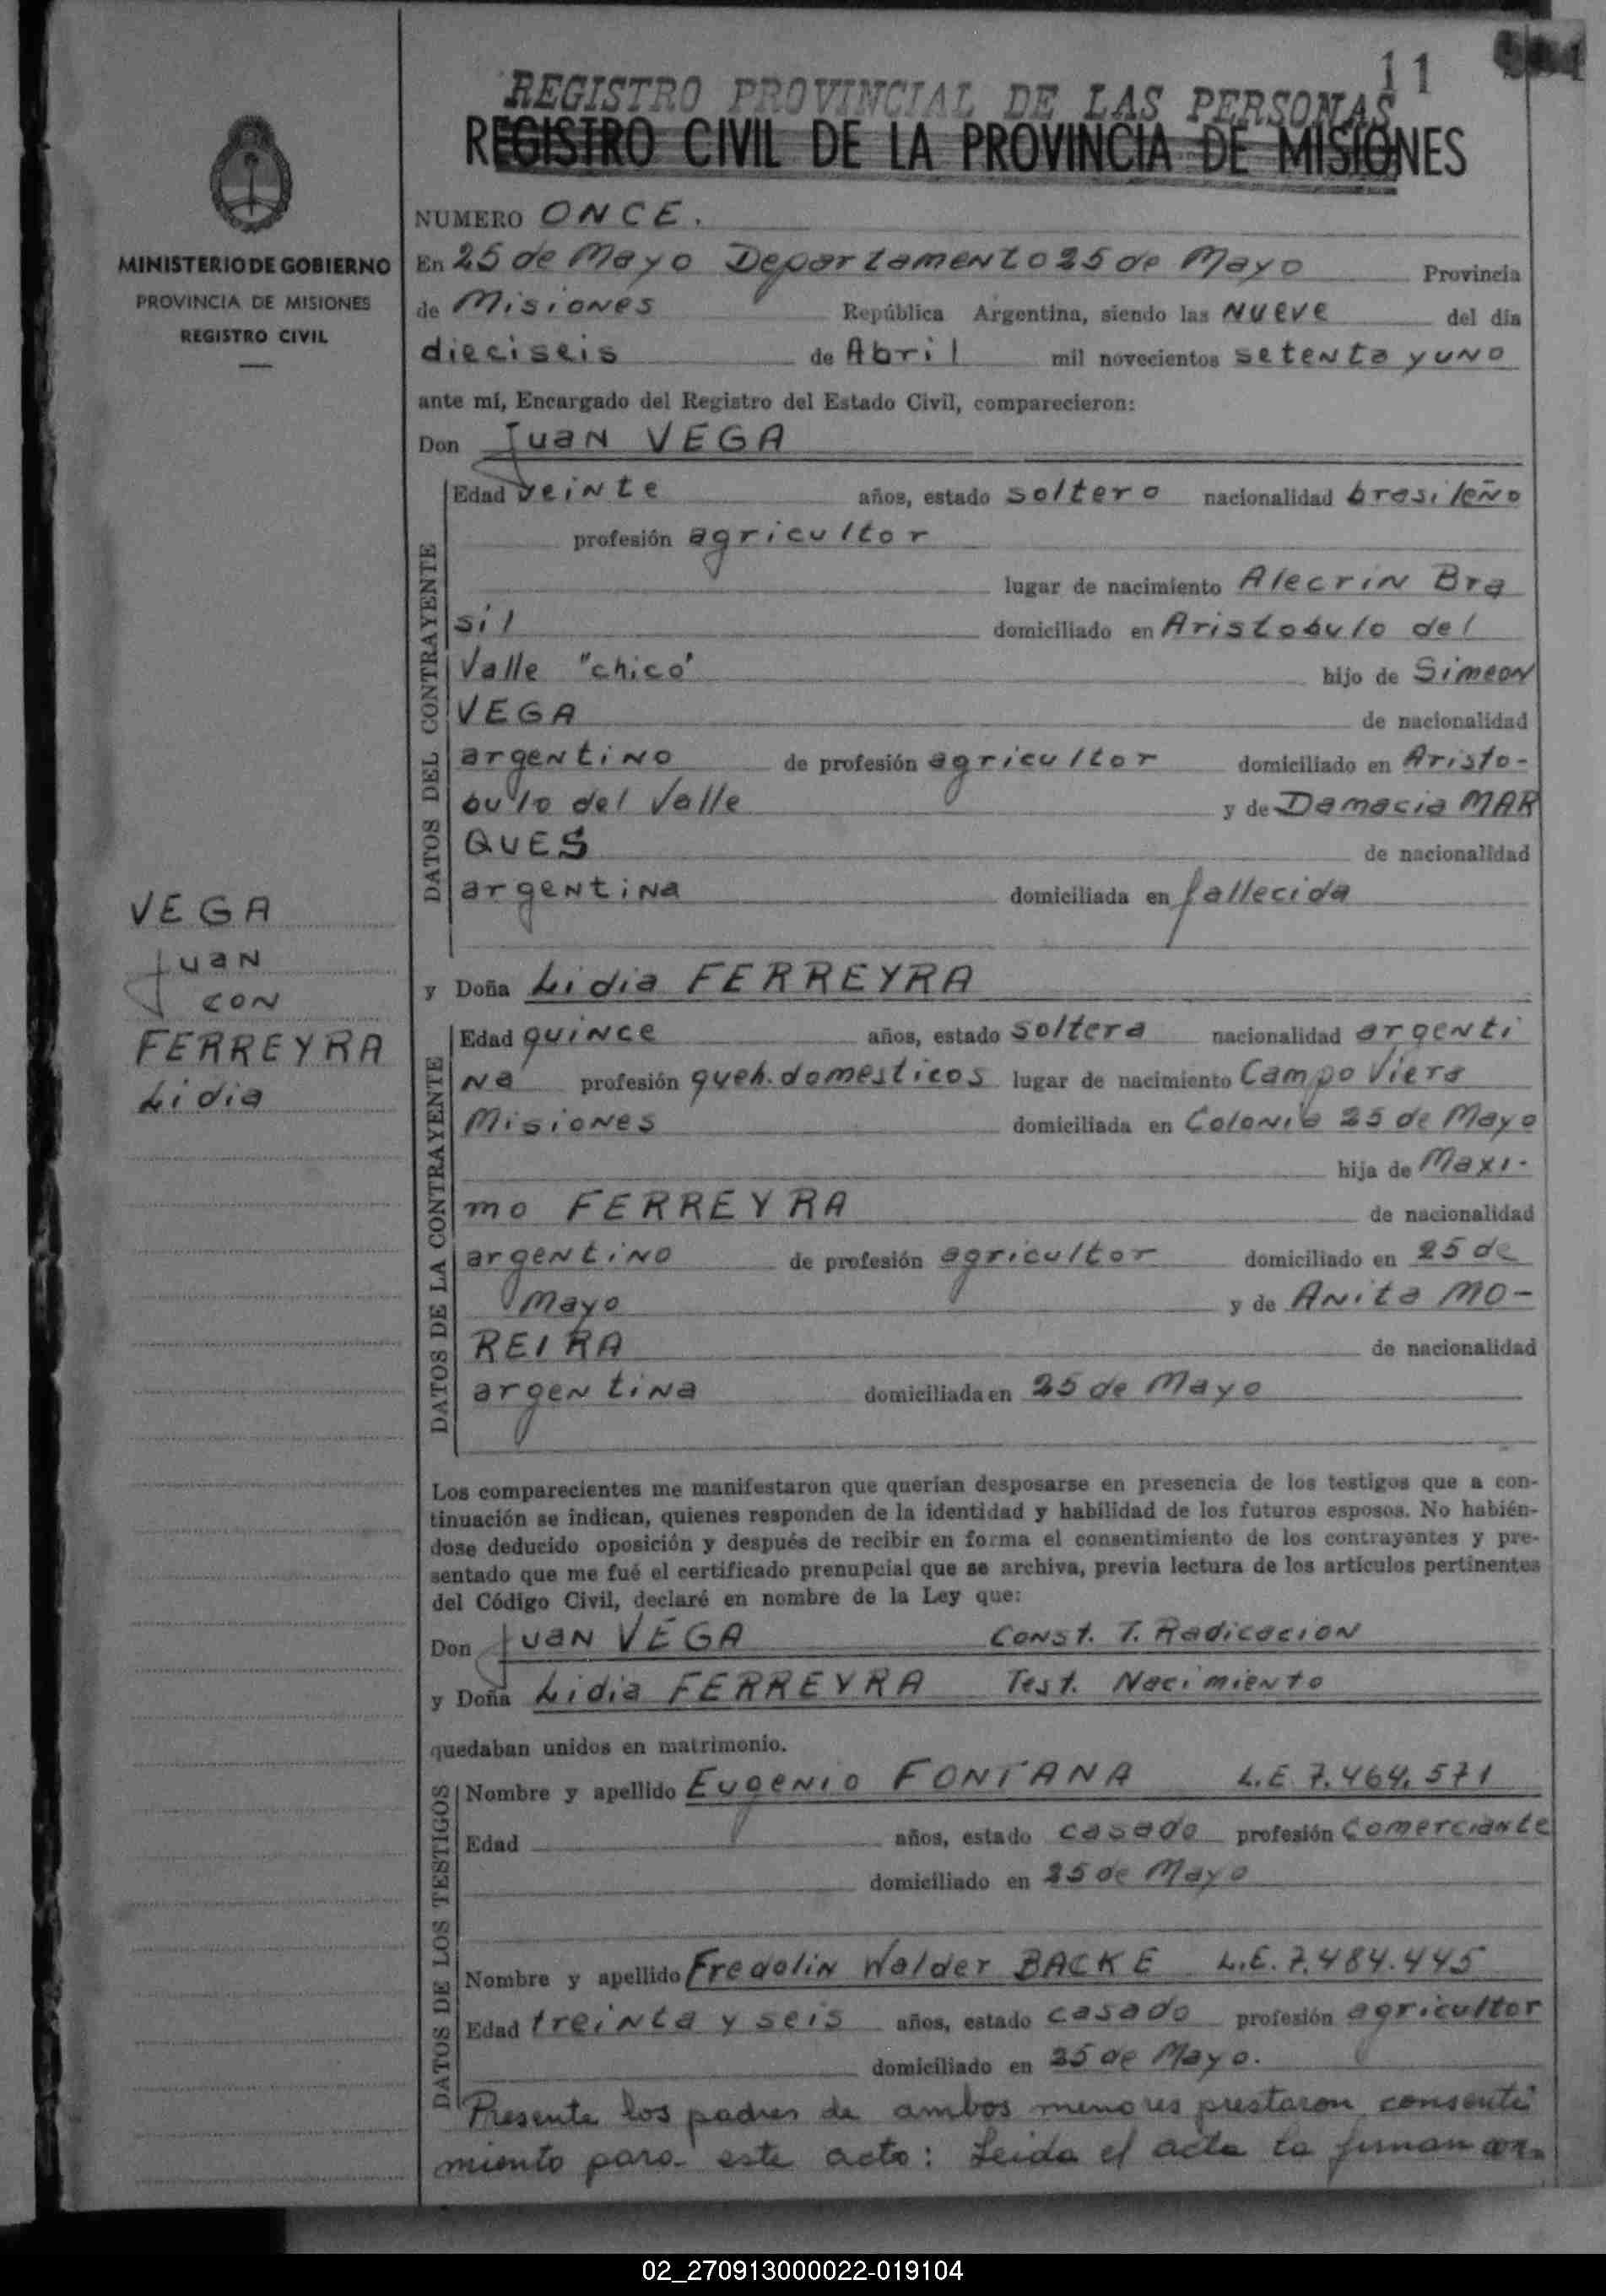 11
REGISTRO PROVINCIAL DE LAS PERSONAS
REGISTRO CIVIL DE LA PROVINCIA DE MISIONES
MINISTERIO DE GOBIERNO
PROVINCIA DE MISIONES
REGISTRO CIVIL
NUMERO ONCE.
En 25 de Mayo Departamento 25 de Mayo Provincia
de Misiones República Argentina, siendo las Nueve del día
dieciseis de Abril mil novecientos setenta y uno
ante mí, Encargado del Registro del Estado Civil, comparecieron:
Don Juan VEGA
DATOS DEL CONTRAYENTE
Edad veinte años, estado soltero nacionalidad brasileño
profesión agricultor
lugar de nacimiento Alecrin Bra
sil domiciliado en Aristobulo del
Valle "chico" hijo de Simeon
VEGA de nacionalidad
argentino de profesión agricultor domiciliado en Aristo-
bulo del Valle y de Damacia MAR
QUES de nacionalidad
argentina domiciliada en fallecida
VEGA
Juan
CON
FERREYRA
Lidia
y Doña Lidia FERREYRA
DATOS DE LA CONTRAYENTE
Edad quince años, estado soltera nacionalidad argenti
na profesión queh. domesticos lugar de nacimiento Campo Viera
Misiones domiciliada en Colonia 25 de Mayo
hija de Maxi-
mo FERREYRA de nacionalidad
argentino de profesión agricultor domiciliado en 25 de
Mayo y de Anita MO-
REIRA de nacionalidad
argentina domiciliada en 25 de Mayo
Los comparecientes me manifestaron que querían desposarse en presencia de los testigos que a con-
tinuación se indican, quienes responden de la identidad y habilidad de los futuros esposos. No habién-
dose deducido oposición y después de recibir en forma el consentimiento de los contrayentes y pre-
sentado que me fué el certificado prenupcial que se archiva, previa lectura de los artículos pertinentes
del Código Civil, declaré en nombre de la Ley que:
Don Juan VEGA Const. T. Radicacion
y Doña Lidia FERREYRA Test. Nacimiento
quedaban unidos en matrimonio.
DATOS DE LOS TESTIGOS
Nombre y apellido Eugenio FONTANA L.E 7.464.571
Edad años, estado casado profesión Comerciante
domiciliado en 25 de Mayo
Nombre y apellido Fredolin Walder BACKE L.E. 7.484.445
Edad treinta y seis años, estado casado profesión agricultor
domiciliado en 25 de Mayo.
Presente los padres de ambos menores prestaron consenti
miento para este acto: Leida el acta la firman
02_270913000022-019104